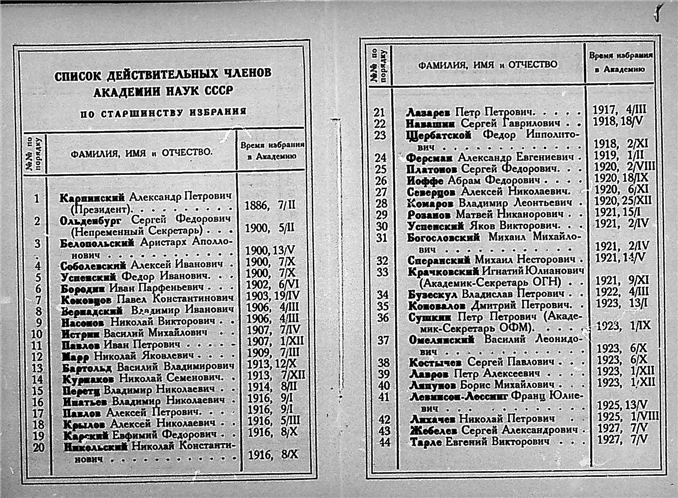 СПИСОК ДЕЙСТВИТЕЛЬНЫХ ЧЛЕНОВ
АКАДЕМИИ НАУК СССР
ПО СТАРШИНСТВУ ИЗБРАНИЯ
№№ по порядку ФАМИЛИЯ, ИМЯ и ОТЧЕСТВО. Время избрания в Академию
1 Карпинский Александр Петрович
(Президент). 1886, 7/II
2 Ольденбург Сергей Федорович
(Непременный Секретарь) 1900, 5/II
3 Белопольский Аристарх Аполло-
нович 1900, 13/V
4 Соболевский Алексей Иванович 1900, 7/X
5 Успенский Федор Иванович. 1900, 7/X
6 Бородин Иван Парфеньевич 1902, 6/VI
7 Коковцов Павел Константинович 1903, 19/IV
8 Вернадский Владимир Иванович 1906, 4/III
9 Насонов Николай Викторович 1906, 4/III
10 Истрин Василий Михайлович 1907, 7/IV
11 Павлов Иван Петрович 1907, 1/XII
12 Марр Николай Яковлевич 1909, 7/III
13 Бартольд Василий Владимирович 1913, 12/X
14 Курнаков Николай Семенович. 1913, 7/XII
15 Перетц Владимир Николаевич 1914, 8/II
16 Ипатьев Владимир Николаевич 1916, 9/I
17 Павлов Алексей Петрович. 1916, 9/I
18 Крылов Алексей Николаевич 1916, 5/III
19 Карский Евфимий Федорович 1916, 8/X
20 Никольский Николай Константи-
нович 1916, 8/X
№№ по порядку ФАМИЛИЯ, ИМЯ и ОТЧЕСТВО Время избрания в Академию
21 Лазарев Петр Петрович. 1917, 4/III
22 Навашин Сергей Гаврилович 1918, 18/V
23 Щербатской Федор Ипполито-
вич 1918, 2/XI
24 Ферсман Александр Евгениевич 1919, 1/II
25 Платонов Сергей Федорович. 1920, 2/VIII
26 Иоффе Абрам Федорович 1920, 18/IX
27 Северцов Алексей Николаевич. 1920, 6/XI
28 Комаров Владимир Леонтьевич 1920, 25/XII
29 Розанов Матвей Никанорович 1921, 15/I
30 Успенский Яков Викторович. 1921, 2/IV
31 Богословский Михаил Михайло-
вич 1921, 2/IV
32 Сперанский Михаил Несторович 1921, 14/V
33 Крачковский Игнатий Юлианович
(Академик-Секретарь ОГН) 1921, 9/XI
34 Бузескул Владислав Петрович 1922, 4/III
35 Коновалов Дмитрий Петрович. 1923, 13/I
36 Сушкин Петр Петрович (Акаде-
мик-Секретарь ОФМ). 1923, 1/IX
37 Омелянский Василий Леонидо-
вич 1923, 6/X
38 Костычев Сергей Павлович 1923, 6/X
39 Лавров Петр Алексеевич 1923, 1/XII
40 Ляпунов Борис Михайлович 1923, 1/XII
41 Левинсон-Лессинг Франц Юлие-
вич 1925, 13/V
42 Лихачев Николай Петрович 1925, 1/VIII
43 Жебелев Сергей Александрович 1927, 7/V
44 Тарле Евгений Викторович 1927, 7/V